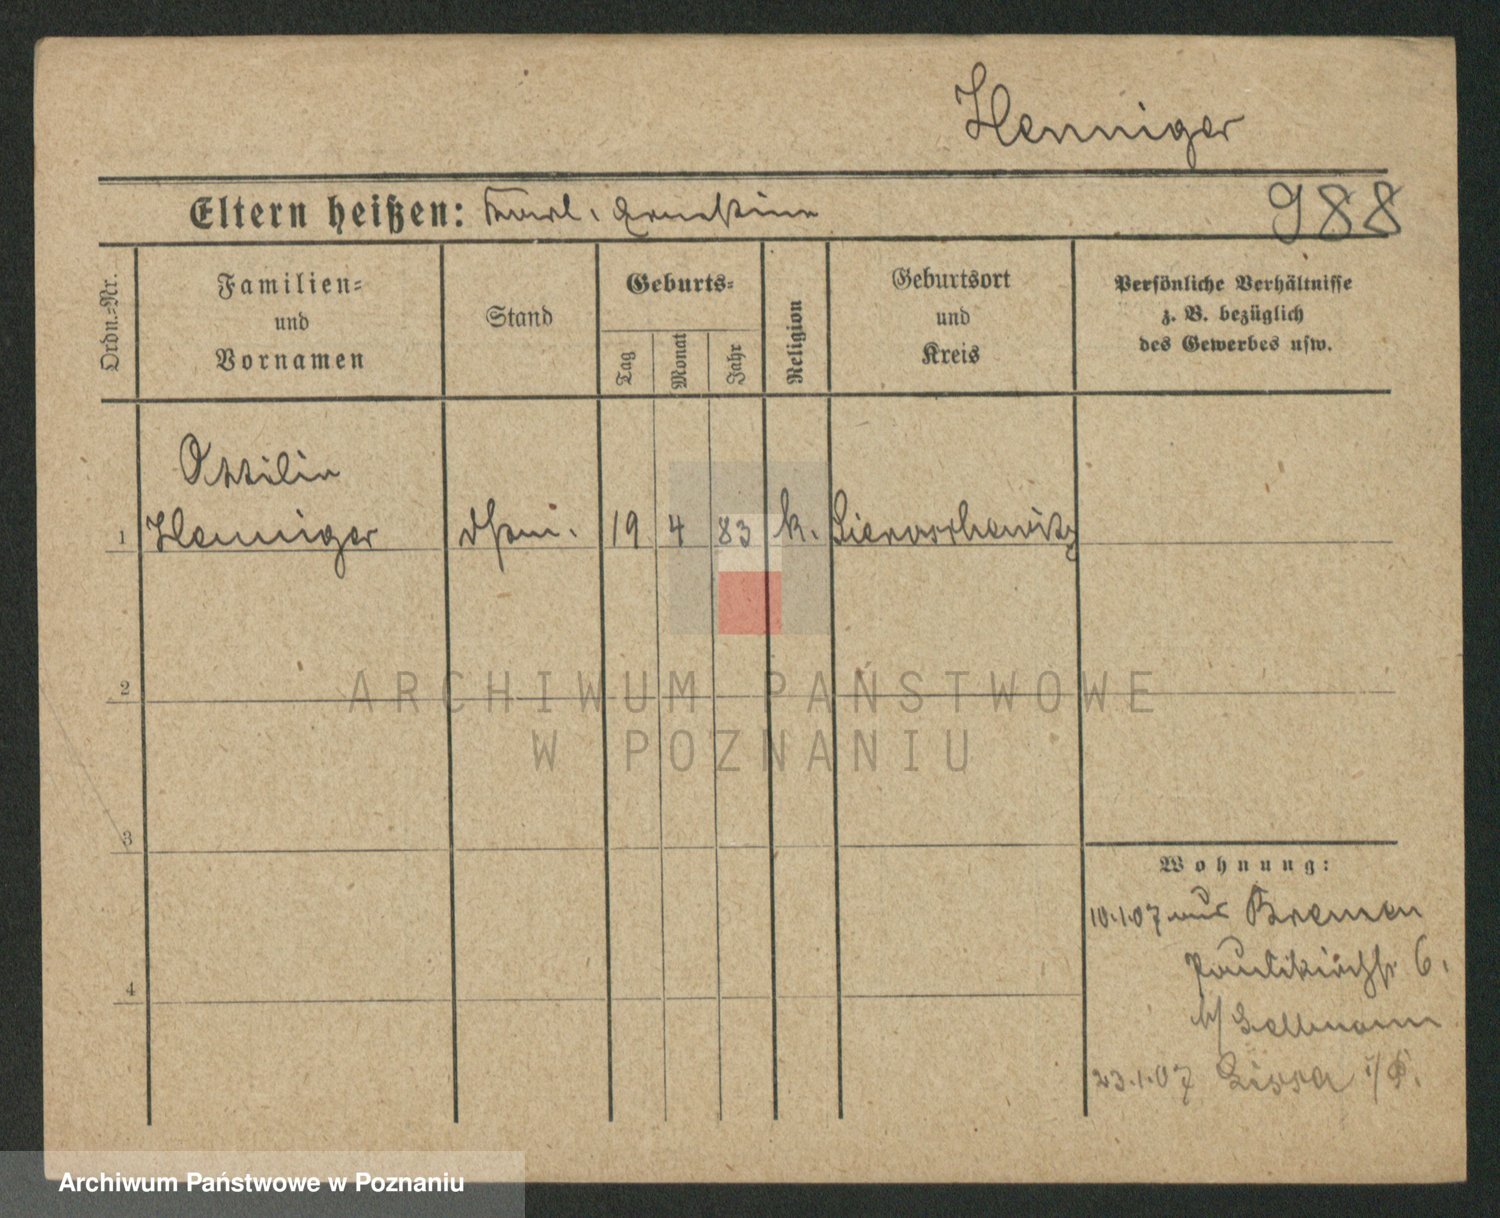 Henniger
Eltern heißen: Karl, Ernestine
988
Ordn.=Nr.
Familien=
und
Vornamen
Stand
Geburts=
Tag
Monat
Jahr
Religion
Geburtsort
und
Kreis
Persönliche Verhältnisse
z. B. bezüglich
des Gewerbes usw.
Ottilie
1 Henniger 19 4 83 k.
2
3
4
Wohnung:
10.1.07 aus Bremen
Paulikirchstr 6.
b/
23.1.07 Lissa i/P.
ARCHIWUM PAŃSTWOWE
W POZNANIU
Archiwum Państwowe w Poznaniu